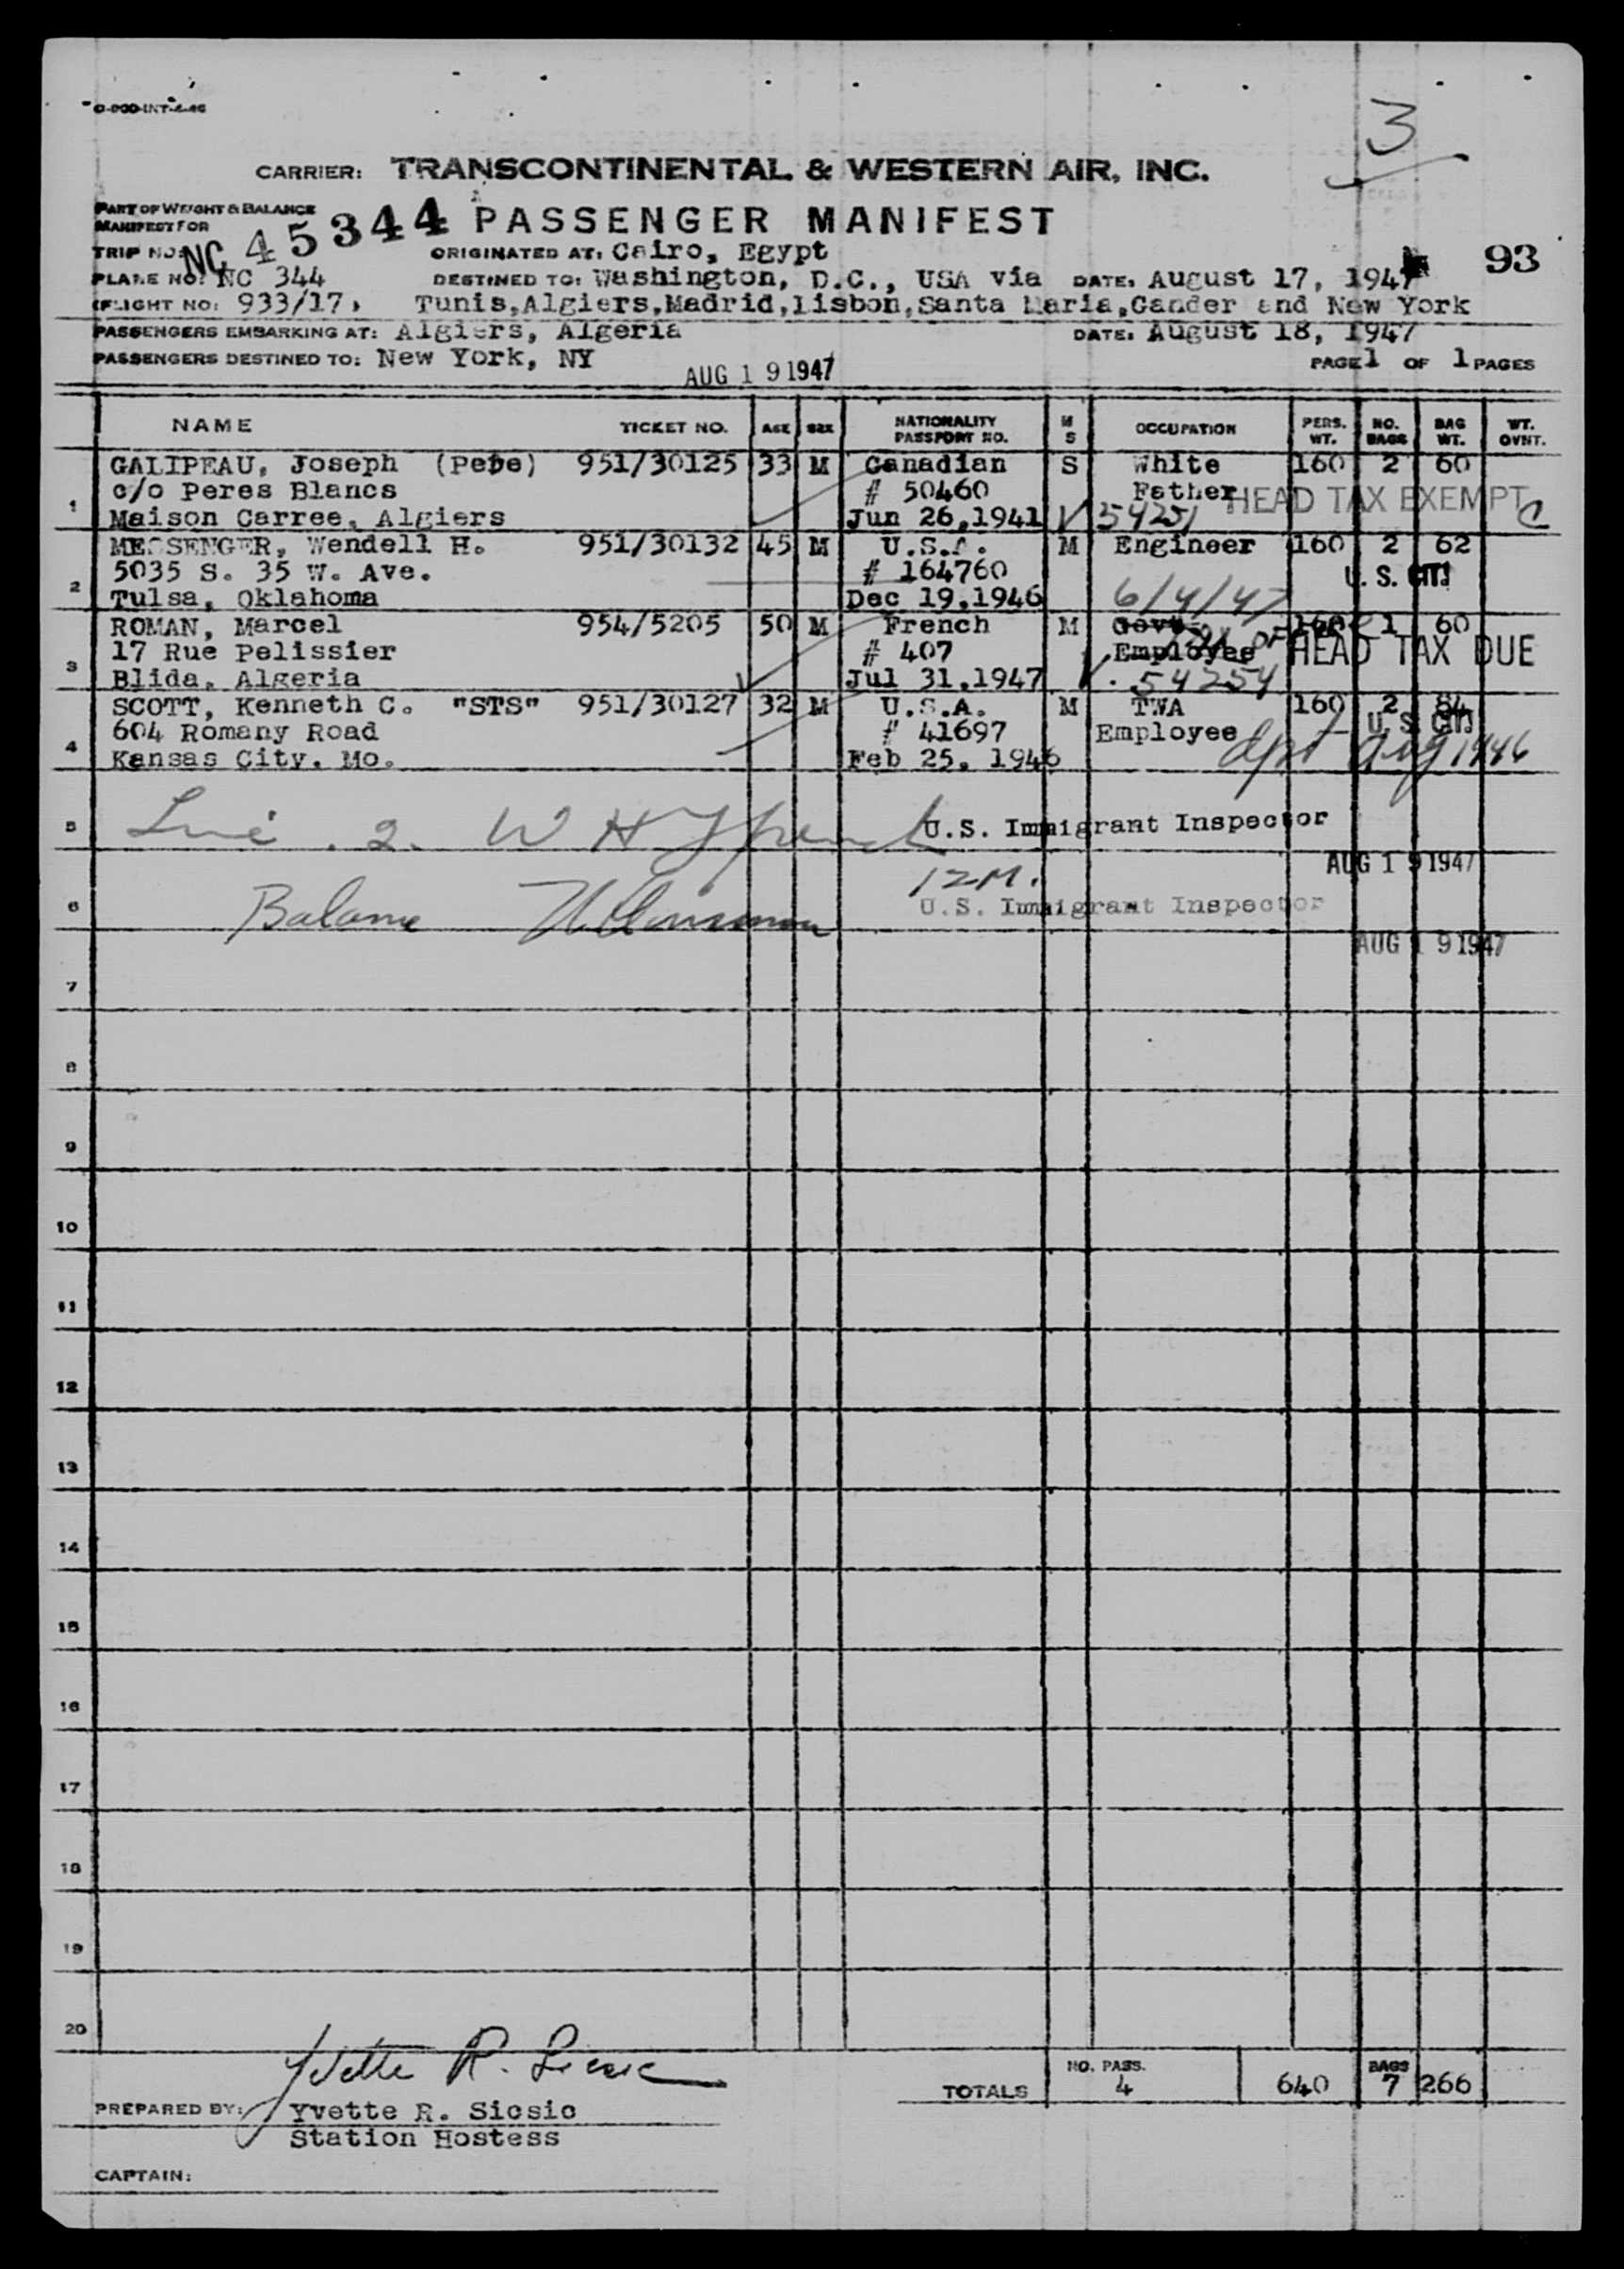 O-900-INT-4-46
3
CARRIER: TRANSCONTINENTAL & WESTERN AIR, INC.
PART OF WEIGHT & BALANCE
MANIFEST FOR
PASSENGER MANIFEST
TRIP NO: NC 45344
ORIGINATED AT: Cairo, Egypt
93
PLANE NO: NC 344 DESTINED TO: Washington, D.C., USA via DATE: August 17, 1947
(FLIGHT NO: 933/17, Tunis,Algiers,Madrid,Lisbon,Santa Maria,Gander and New York
PASSENGERS EMBARKING AT: Algiers, Algeria DATE: August 18, 1947
PASSENGERS DESTINED TO: New York, NY PAGE 1 OF 1 PAGES
AUG 19 1947
NAME TICKET NO. AGE SEX NATIONALITY PASSPORT NO. M S OCCUPATION PERS. WT. NO. BAGS BAG WT. WT. OVNT.
GALIPEAU, Joseph (Pere) 951/30125 33 M Canadian S White 160 2 60
c/o Peres Blancs # 50460 Father HEAD TAX EXEMPT
1 Maison Carree, Algiers Jun 26,1941 V 54251 C
MESSENGER, Wendell H. 951/30132 45 M U.S.A. M Engineer 160 2 62
5035 S. 35 W. Ave. # 164760 U. S. CIT.
2 Tulsa, Oklahoma Dec 19,1946 6/4/47
ROMAN, Marcel 954/5205 50 M French M Govt. 160 1 60
17 Rue Pelissier # 407 Employee HEAD TAX DUE
3 Blida, Algeria Jul 31,1947 V. 54254
SCOTT, Kenneth C. "STS" 951/30127 32 M U.S.A. M TWA 160 2 84
604 Romany Road # 41697 Employee U. S. CIT.
4 Kansas City, Mo. Feb 25, 1946 dpt Aug 1946
5 Line 2. W H U.S. Immigrant Inspector
AUG 19 1947
12 M.
6 Balance U.S. Immigrant Inspector
AUG 19 1947
7
8
9
10
11
12
13
14
15
16
17
18
19
20
Yvette R. Sicsic
TOTALS NO. PASS. 4 640 BAGS 7 266
PREPARED BY: Yvette R. Sicsic
Station Hostess
CAPTAIN: